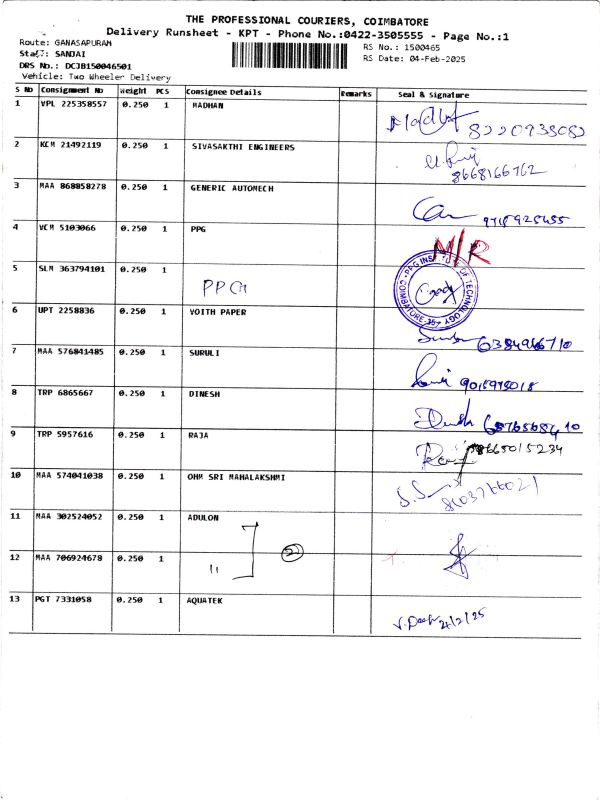 THE PROFESSIONAL COURIERS, COIMBATORE
Delivery Runsheet - KPT - Phone No.:0422-3505555 - Page No.:1
Route: GANASAPURAM
RS No.: 1500465
Staff: SANJAI
RS Date: 04-Feb-2025
DRS No.: DCJB150046501
Vehicle: Two Wheeler Delivery
S No Consignment No Weight PCS Consignee Details Remarks Seal & Signature
1 VPL 225358557 0.250 1 MADHAN
8220938082
2 KCM 21492119 0.250 1 SIVASAKTHI ENGINEERS
8668166762
3 MAA 868858278 0.250 1 GENERIC AUTOMECH
4 VCM 5103066 0.250 1 PPG
M/R
5 SLM 363794101 0.250 1
PPG INSTITUTE OF TECHNOLOGY COIMBATORE-35
6 UPT 2258836 0.250 1 VOITH PAPER
7 MAA 576841485 0.250 1 SURULI
8 TRP 6865667 0.250 1 DINESH
9 TRP 5957616 0.250 1 RAJA
10 MAA 574041038 0.250 1 OHM SRI MAHALAKSHMI
11 MAA 302524052 0.250 1 ADULON
12 MAA 706924678 0.250 1 "
2
13 PGT 7331058 0.250 1 AQUATEK
4/2/25